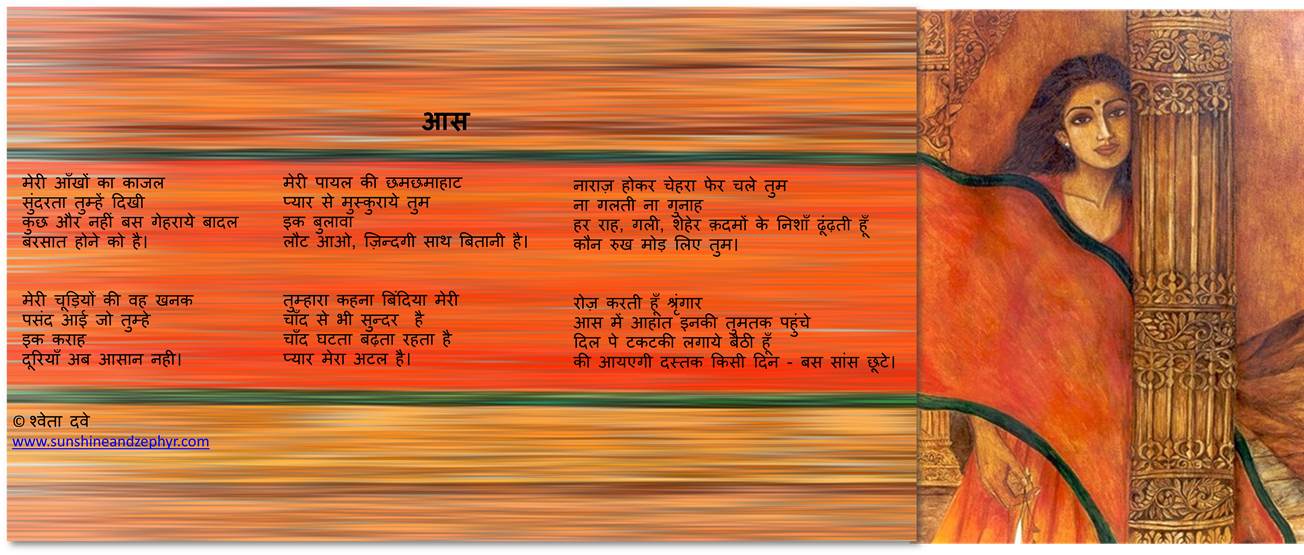 आस
मेरी आँखों का काजल
सुंदरता तुम्हें दिखी
कुछ और नहीं बस गेहराये बादल
बरसात होने को है।
मेरी चूड़ियों की वह खनक
पसंद आई जो तुम्हे
इक कराह
दूरियाँ अब आसान नही।
मेरी पायल की छमछमाहाट
प्यार से मुस्कुराये तुम
इक बुलावा
लौट आओ, ज़िन्दगी साथ बितानी है।
तुम्हारा कहना बिंदिया मेरी
चाँद से भी सुन्दर है
चाँद घटता बढ़ता रहता है
प्यार मेरा अटल है।
नाराज़ होकर चेहरा फेर चले तुम
ना गलती ना गुनाह
हर राह, गली, शेहेर क़दमों के निशाँ ढूंढ़ती हूँ
कौन रुख मोड़ लिए तुम।
रोज़ करती हूँ श्रृंगार
आस में आहात इनकी तुमतक पहुंचे
दिल पे टकटकी लगाये बैठी हूँ
की आयएगी दस्तक किसी दिन - बस सांस छूटे।
© श्वेता दवे
www.sunshineandzephyr.com